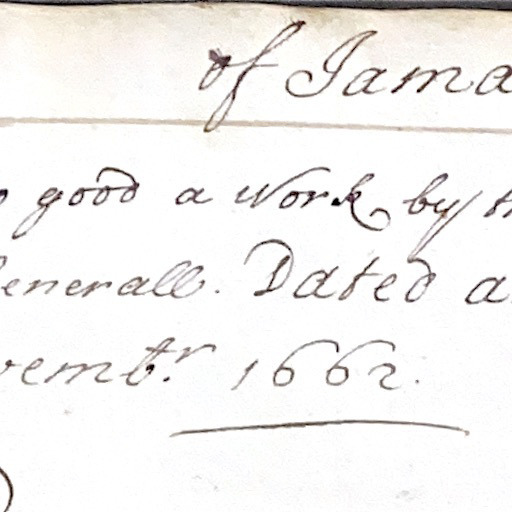 of Jama
good a Work, by th
enerall. Dated a
vembr. 1662.